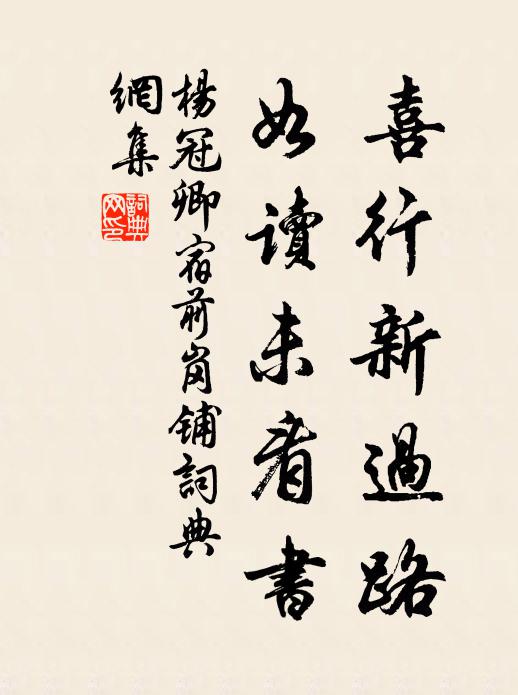 喜行新過路
如讀未看書
楊冠卿宿前崗鋪詞典
網集
詞典
网印